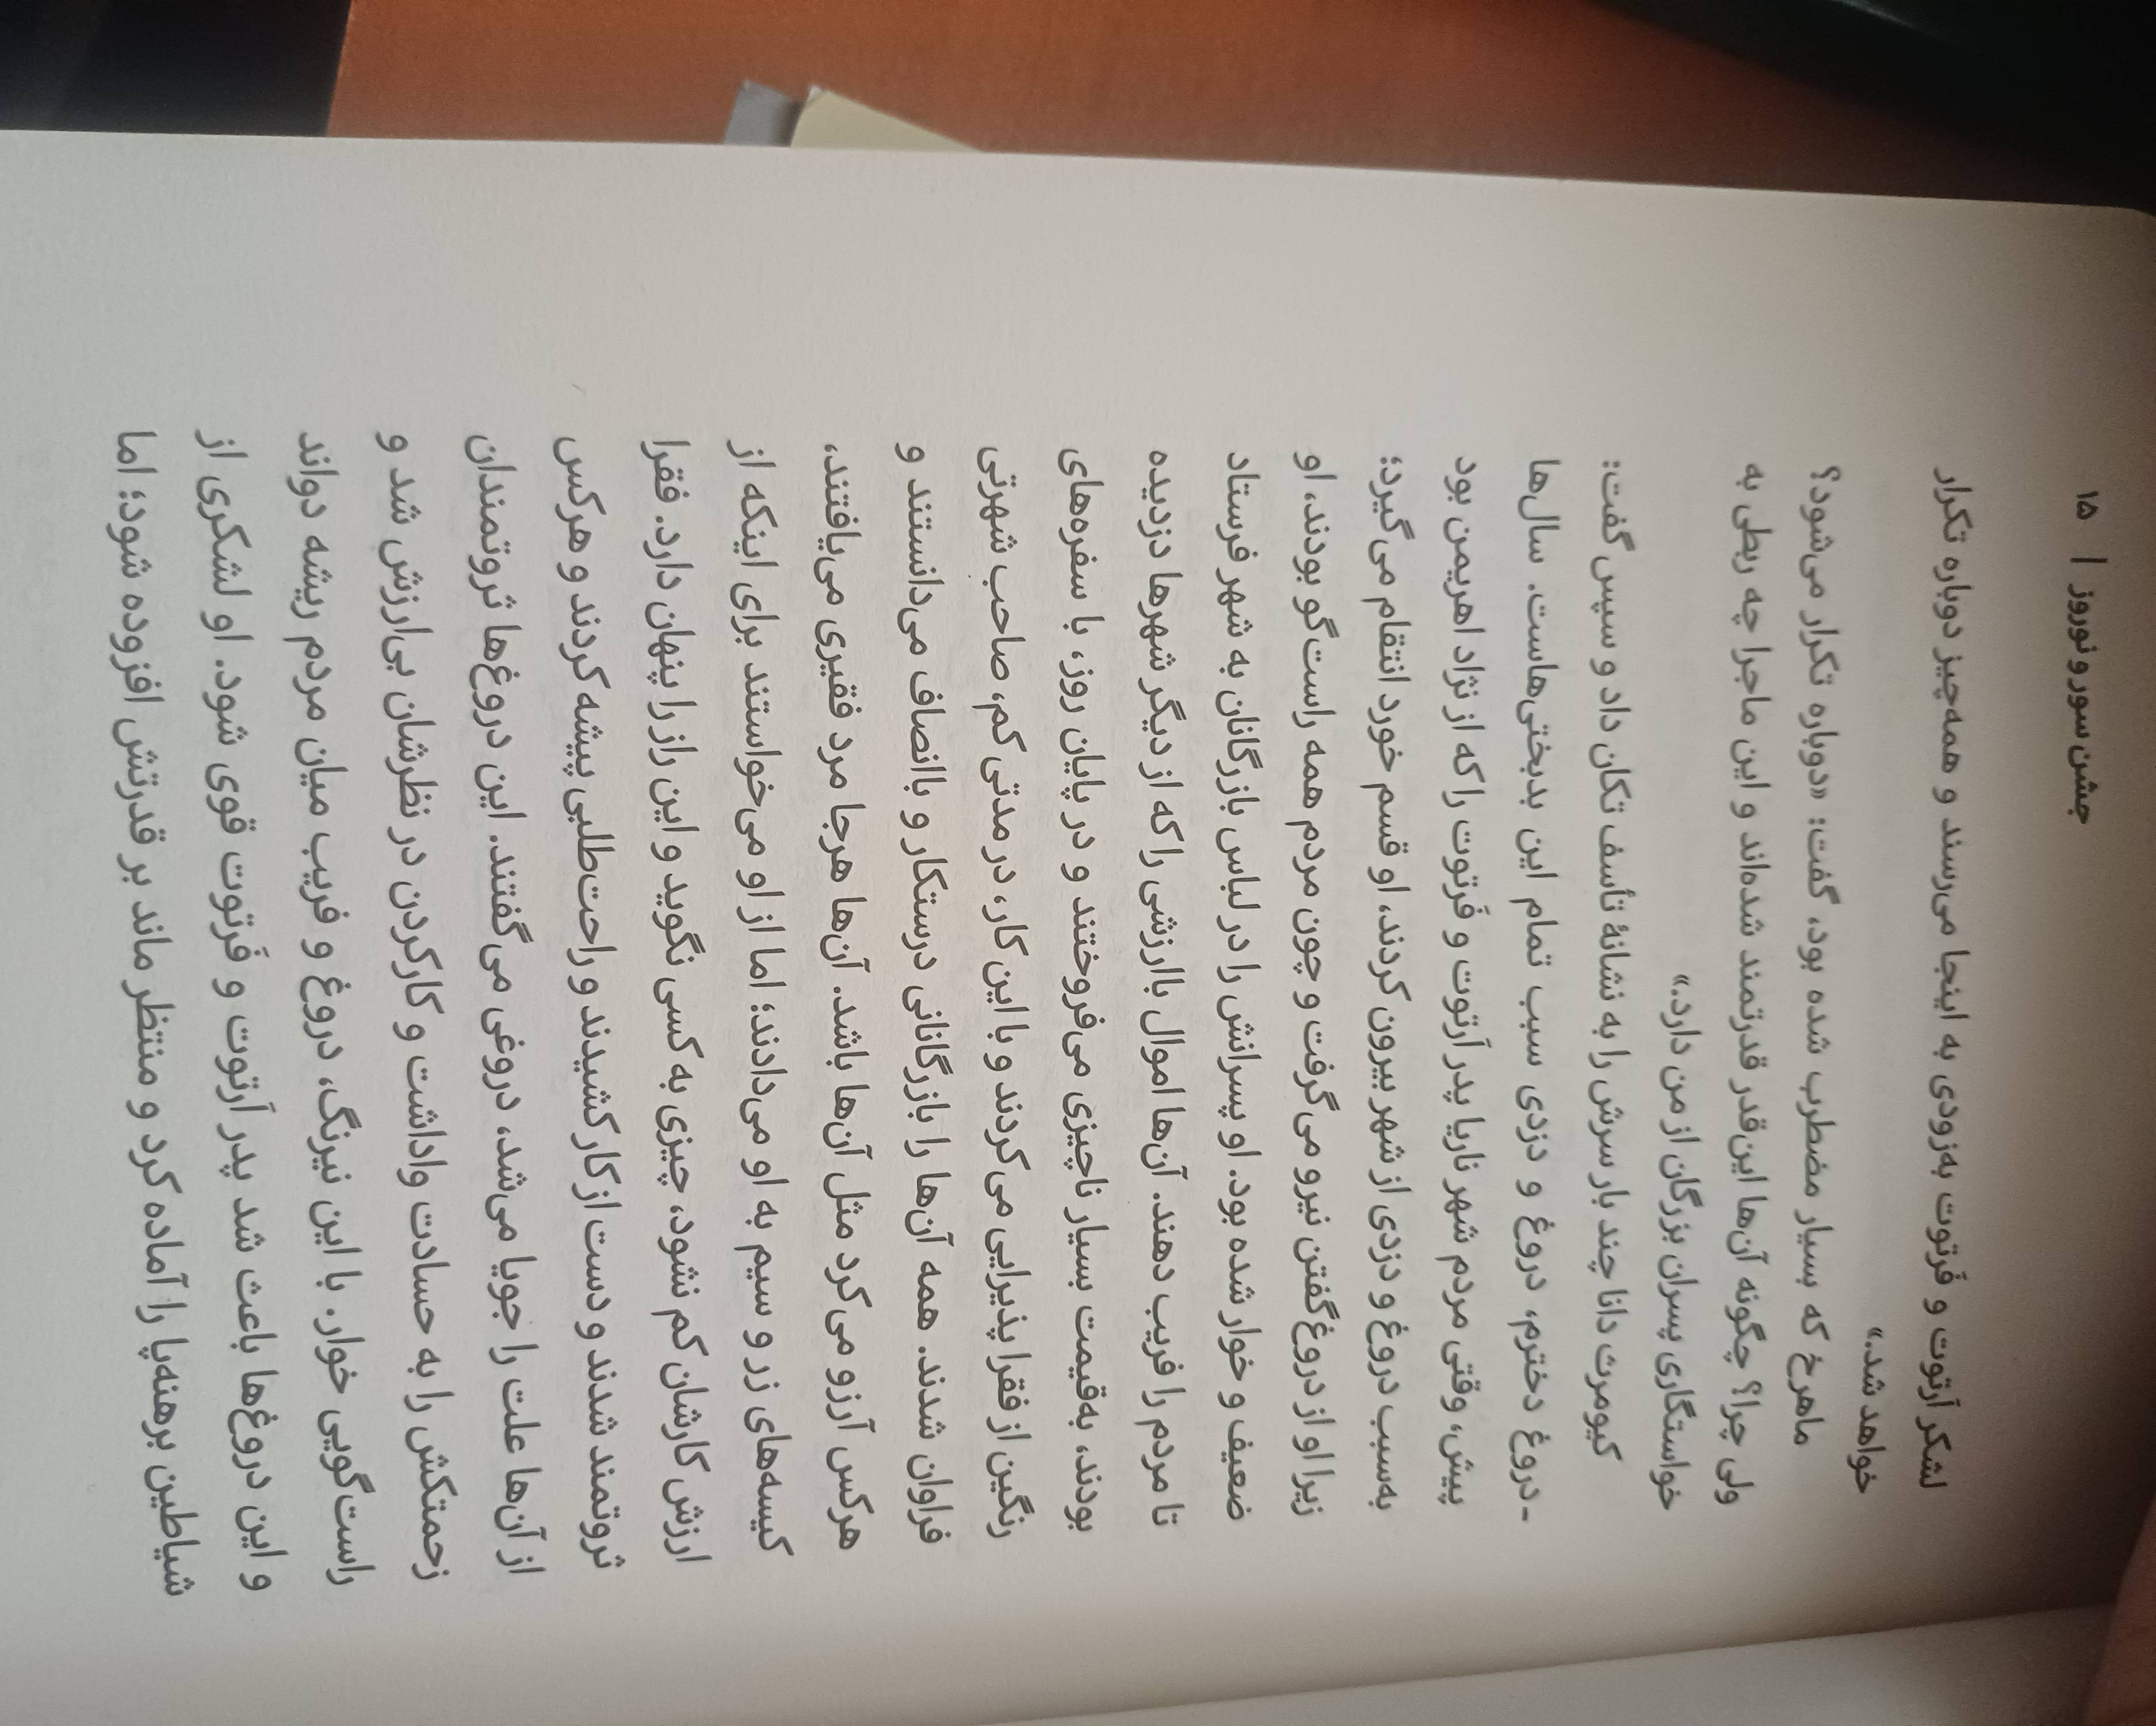 جشن سور و نوروز | ۱۵
لشکر آرتوت و فَرتوت به‌زودی به اینجا می‌رسند و همه‌چیز دوباره تکرار
خواهد شد.»
ماهرخ که بسیار مضطرب شده بود، گفت: «دوباره تکرار می‌شود؟
ولی چرا؟ چگونه آن‌ها این‌قدر قدرتمند شده‌اند و این ماجرا چه ربطی به
خواستگاری پسران بزرگان از من دارد.»
کیومرث دانا چند بار سرش را به نشانهٔ تأسف تکان داد و سپس گفت:
-دروغ دخترم، دروغ و دزدی سبب تمام این بدبختی‌هاست. سال‌ها
پیش، وقتی مردم شهر ناریا پدر آرتوت و فَرتوت را که از نژاد اهریمن بود
به‌سبب دروغ و دزدی از شهر بیرون کردند، او قسم خورد انتقام می‌گیرد؛
زیرا او از دروغ‌گفتن نیرو می‌گرفت و چون مردم همه راست‌گو بودند، او
ضعیف و خوار شده بود. او پسرانش را در لباس بازرگانان به شهر فرستاد
تا مردم را فریب دهند. آن‌ها اموال باارزشی را که از دیگر شهرها دزدیده
بودند، به‌قیمت بسیار ناچیزی می‌فروختند و در پایان روز، با سفره‌های
رنگین از فقرا پذیرایی می‌کردند و با این کار، در مدتی کم، صاحب شهرتی
فراوان شدند. همه آن‌ها را بازرگانانی درستکار و باانصاف می‌دانستند و
هرکس آرزو می‌کرد مثل آن‌ها باشد. آن‌ها هرجا مرد فقیری می‌یافتند،
کیسه‌های زر و سیم به او می‌دادند؛ اما از او می‌خواستند برای اینکه از
ارزش کارشان کم نشود، چیزی به کسی نگوید و این راز را پنهان دارد. فقرا
ثروتمند شدند و دست از کار کشیدند و راحت‌طلبی پیشه کردند و هرکس
از آن‌ها علت را جویا می‌شد، دروغی می‌گفتند. این دروغ‌ها ثروتمندان
زحمتکش را به حسادت واداشت و کارکردن در نظرشان بی‌ارزش شد و
راست‌گویی خوار. با این نیرنگ، دروغ و فریب میان مردم ریشه دواند
و این دروغ‌ها باعث شد پدر آرتوت و فَرتوت قوی شود. او لشکری از
شیاطین برهنه‌پا را آماده کرد و منتظر ماند بر قدرتش افزوده شود؛ اما